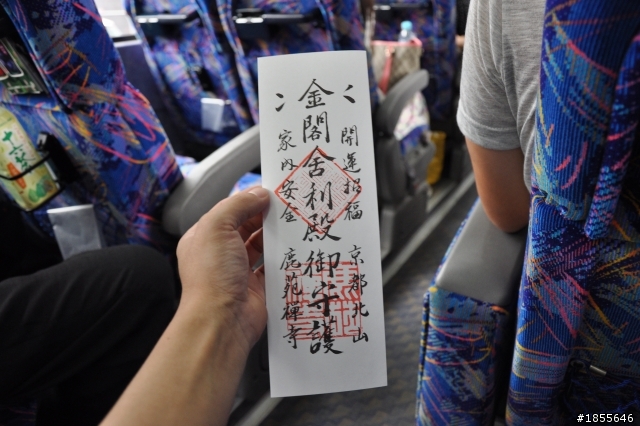 開運招福 京都北山
金閣舎利殿御守護
家內安全 鹿苑禅寺
#1855646